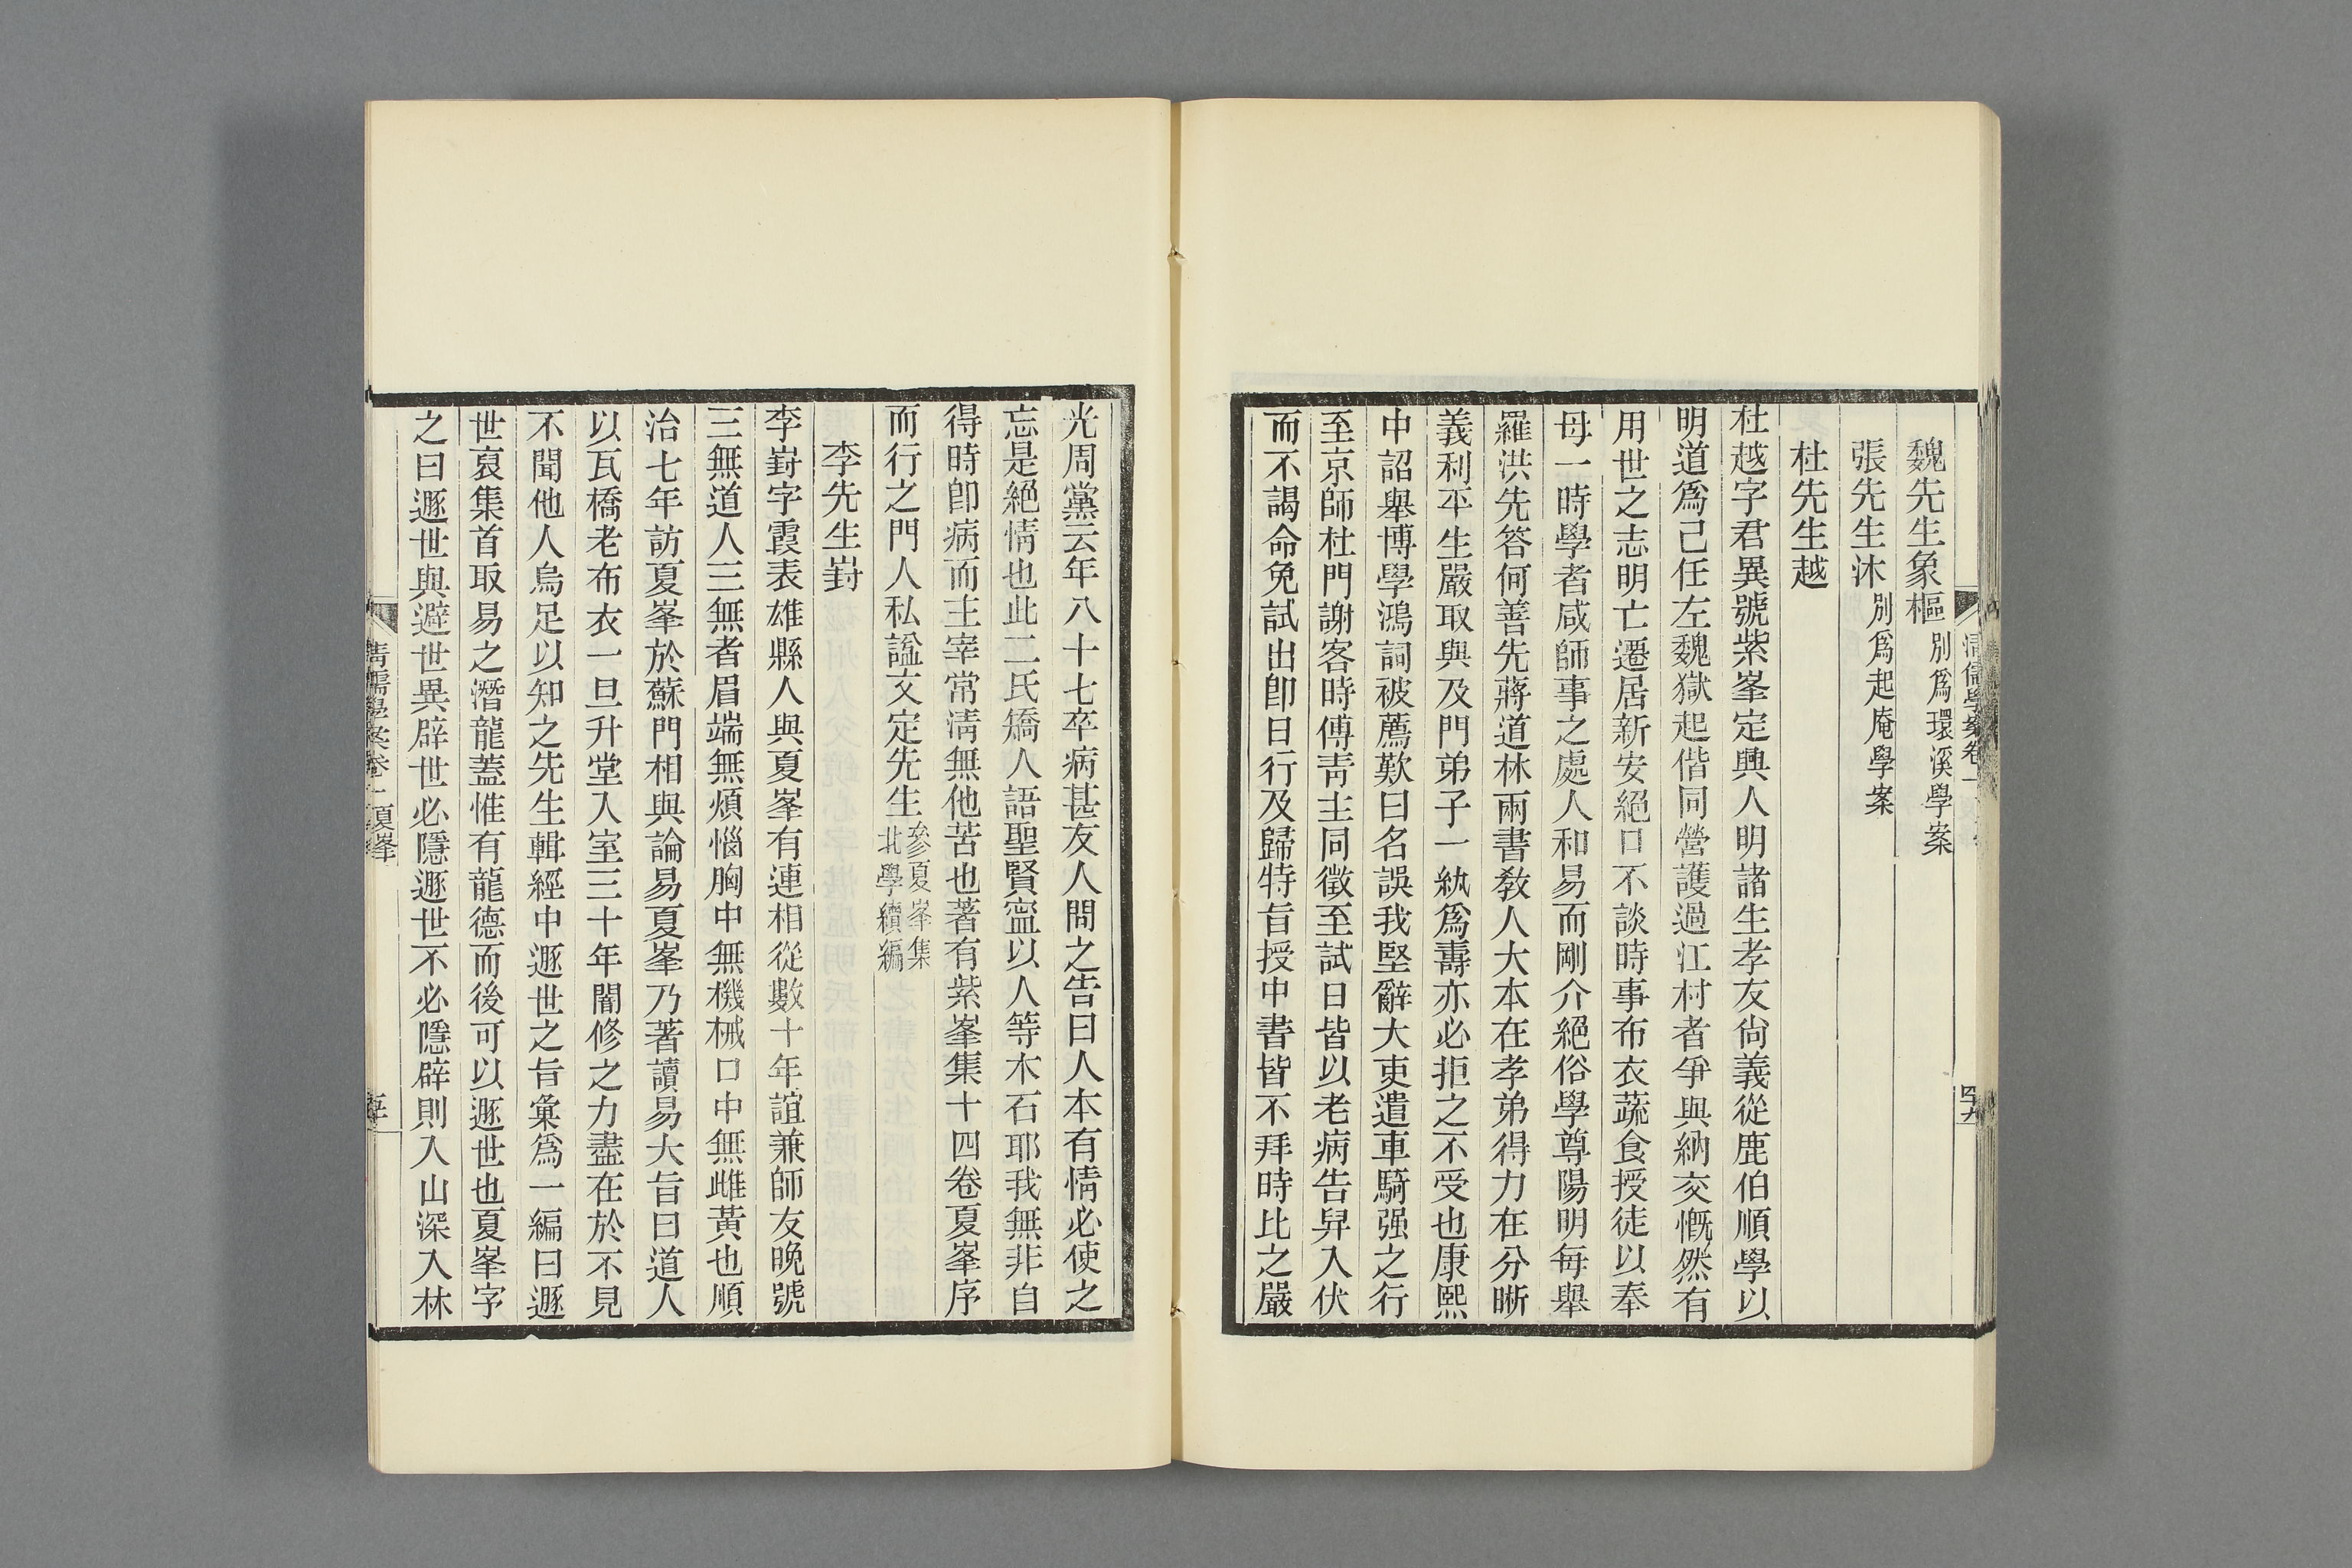 魏先生象樞 別爲環溪學案
張先生沐 別爲起庵學案
杜先生越
杜越字君異號紫峯定興人明諸生孝友尙義從鹿伯順學以
明道爲己任左魏獄起偕同營護過江村者爭與納交慨然有
用世之志明亡遷居新安絕口不談時事布衣蔬食授徒以奉
母一時學者咸師事之處人和易而剛介絕俗學尊陽明每舉
羅洪先答何善先蔣道林兩書敎人大本在孝弟得力在分晰
義利平生嚴取與及門弟子一紈爲壽亦必拒之不受也康熙
中詔舉博學鴻詞被薦歎曰名誤我堅辭大吏遣車騎强之行
至京師杜門謝客時傅靑主同徵至試日皆以老病告舁入伏
而不謁命免試出卽日行及歸特旨授中書皆不拜時比之嚴
清儒學案卷一
四十九
光周黨云年八十七卒病甚友人問之告曰人本有情必使之
忘是絕情也此二氏矯人語聖賢寍以人等木石耶我無非自
得時卽病而主宰常淸無他苦也著有紫峯集十四卷夏峯序
而行之門人私諡文定先生 參夏峯集
北學續編
李先生崶
李崶字霞表雄縣人與夏峯有連相從數十年誼兼師友晚號
三無道人三無者眉端無煩惱胸中無機械口中無雌黃也順
治七年訪夏峯於蘇門相與論易夏峯乃著讀易大旨曰道人
以瓦橋老布衣一旦升堂入室三十年闇修之力盡在於不見
不聞他人烏足以知之先生輯經中遯世之旨彙爲一編曰遯
世裒集首取易之潛龍蓋惟有龍德而後可以遯世也夏峯字
之曰遯世與避世異辟世必隱遯世不必隱辟則入山深入林
清儒學案卷一 夏峯
五十